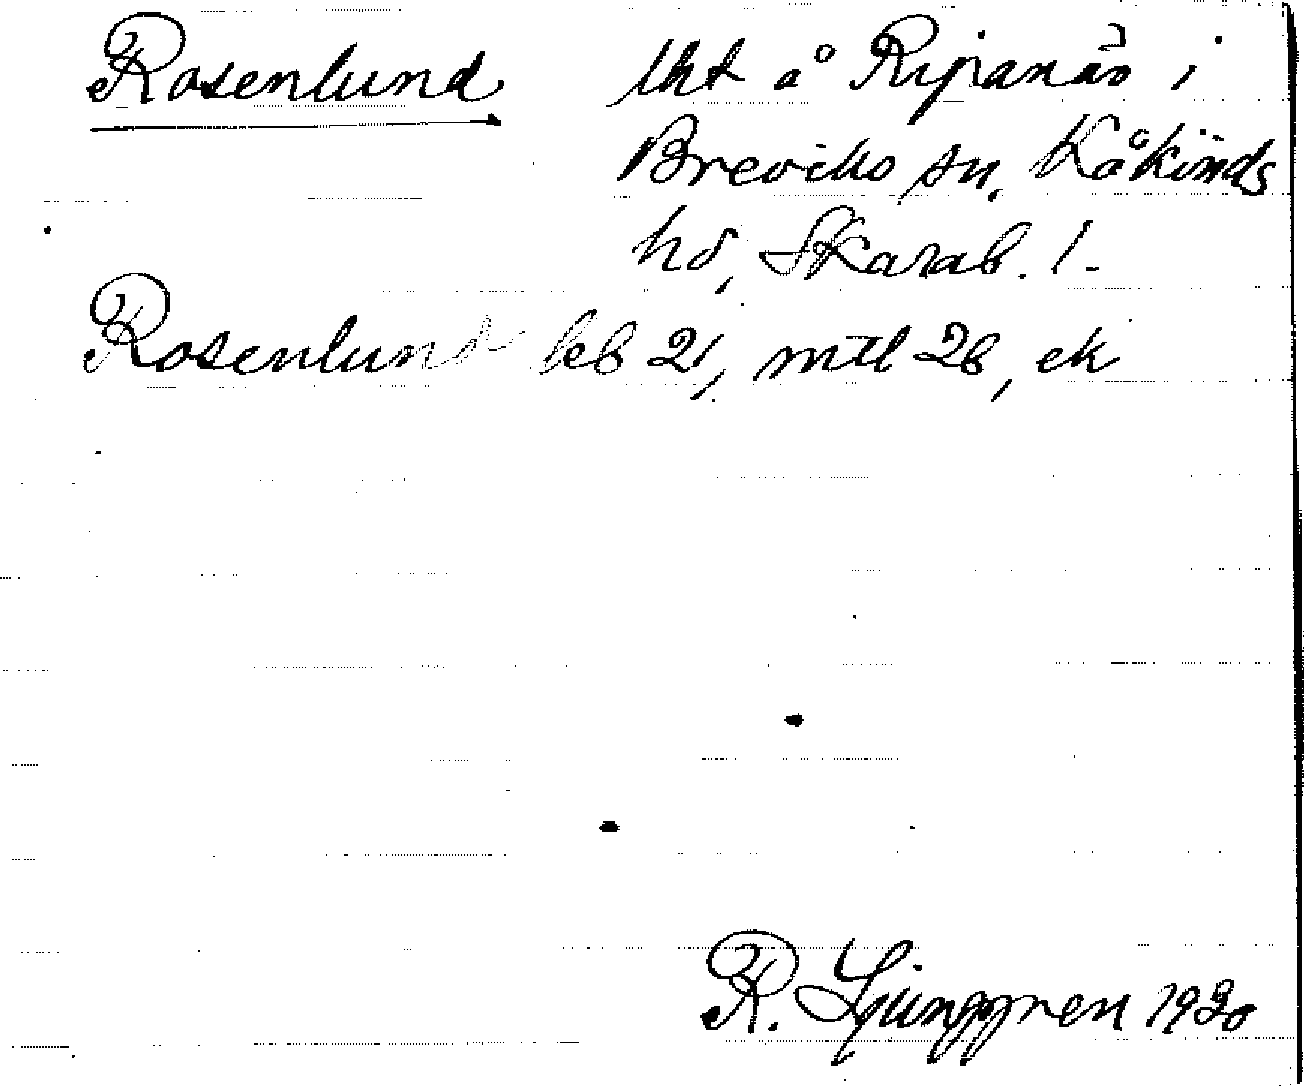 Rosenlund lht å Ripanäs i
Breviks sn, Kåkinds
hd, Skarab. l.
Rosenlund leb 21, mtl 26, ek
R. Ljunggren 1920